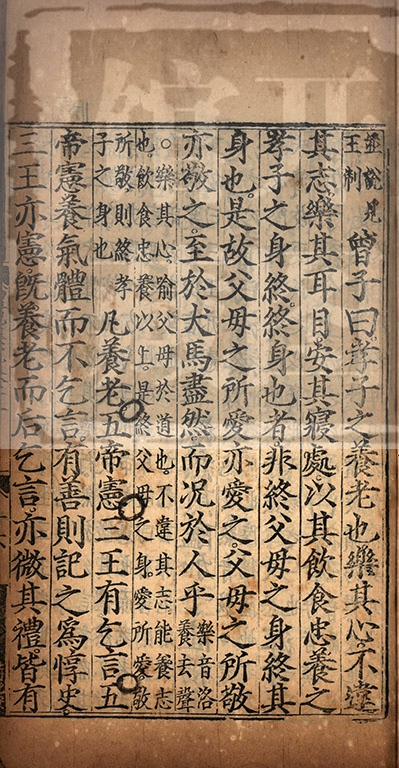 並說見
王制
曾子曰孝子之養老也樂其心不違
其志樂其耳目安其寢處以其飲食忠養之
孝子之身終終身也者非終父母之身終其
身也是故父母之所愛亦愛之父母之所敬
亦敬之至於犬馬盡然而况於人乎
樂音洛
養去聲
○樂其心喻父母於道也不違其志能養志
也飲食忠養以上是終父母之身愛所愛敬
所敬則終孝
子之身也
凡養老五帝憲三王有乞言五
帝憲養氣體而不乞言有善則記之爲惇史
三王亦憲旣養老而后乞言亦微其禮皆有